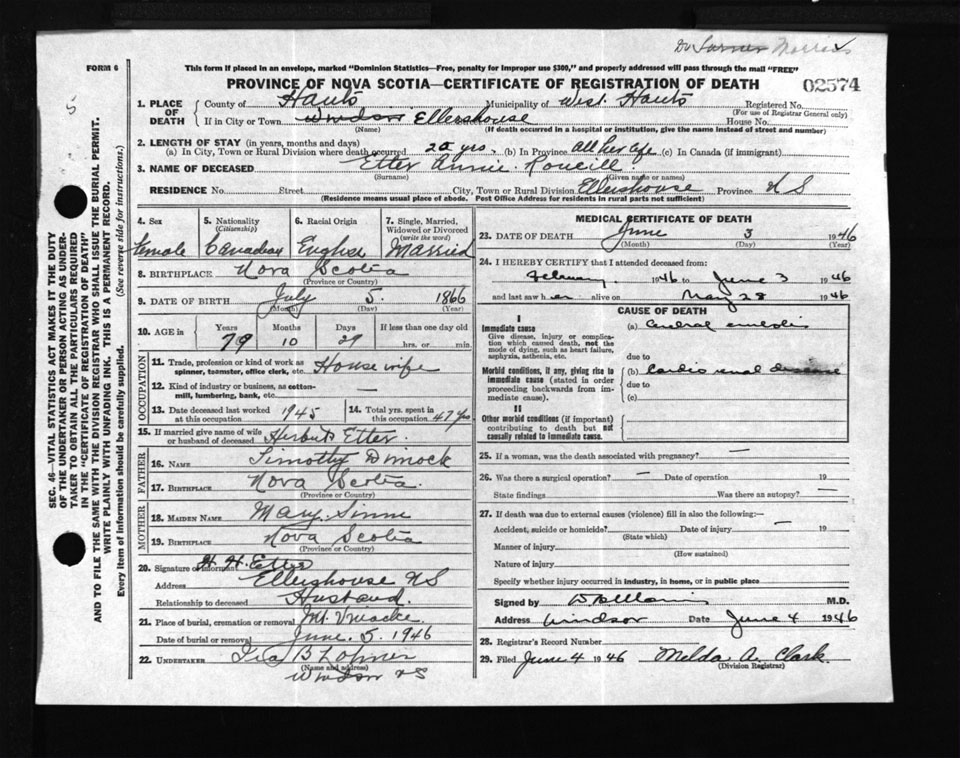 Dr Morris
FORM 6
This form if placed in an envelope, marked "Dominion Statistics—Free, penalty for improper use $300," and properly addressed will pass through the mail "FREE"
PROVINCE OF NOVA SCOTIA—CERTIFICATE OF REGISTRATION OF DEATH 02574
5
SEC. 46—VITAL STATISTICS ACT MAKES IT THE DUTY
OF THE UNDERTAKER OR PERSON ACTING AS UNDER-
TAKER TO OBTAIN ALL THE PARTICULARS REQUIRED
IN THE "CERTIFICATE OF REGISTRATION OF DEATH"
AND TO FILE THE SAME WITH THE DIVISION REGISTRAR WHO SHALL ISSUE THE BURIAL PERMIT.
WRITE PLAINLY WITH UNFADING INK. THIS IS A PERMANENT RECORD.
Every item of information should be carefully supplied. (See reverse side for instructions.)
1. PLACE OF DEATH County of Hants Municipality of West Hants Registered No.
(For use of Registrar General only)
If in City or Town Windsor Ellershouse Street House No.
(Name) (If death occurred in a hospital or institution, give the name instead of street and number)
2. LENGTH OF STAY (in years, months and days)
(a) In City, Town or Rural Division where death occurred 20 yrs. (b) In Province All her life (c) In Canada (if immigrant)
3. NAME OF DECEASED Etter Annie
(Surname) (Given name or names)
RESIDENCE No Street City, Town or Rural Division Ellershouse Province N S
(Residence means usual place of abode. Post Office Address for residents in rural parts not sufficient)
4. Sex 5. Nationality (Citizenship) 6. Racial Origin 7. Single, Married, Widowed or Divorced (write the word)
female Canadian English Married
8. BIRTHPLACE Nova Scotia
(Province or Country)
9. DATE OF BIRTH July 5. 1866
(Month) (Day) (Year)
10. AGE in Years Months Days If less than one day old
79 10 29 hrs. or min.
OCCUPATION
11. Trade, profession or kind of work as spinner, teamster, office clerk, etc. House wife
12. Kind of industry or business, as cotton-mill, lumbering, bank, etc. —
13. Date deceased last worked at this occupation 1945 14. Total yrs. spent in this occupation 47 yrs
15. If married give name of wife or husband of deceased Herbert Etter.
FATHER
16. NAME Timothy Dimock
17. BIRTHPLACE Nova Scotia.
(Province or Country)
MOTHER
18. MAIDEN NAME Mary
19. BIRTHPLACE Nova Scotia
(Province or Country)
20. Signature of Informant H. H. Etter
Address Ellershouse N S
Relationship to deceased Husband.
21. Place of burial, cremation or removal Mt. Uniacke.
Date of burial or removal June. 5. 1946
22. UNDERTAKER Ira B
(Name and address)
Windsor N S
MEDICAL CERTIFICATE OF DEATH
23. DATE OF DEATH June 3 1946
(Month) (Day) (Year)
24. I HEREBY CERTIFY that I attended deceased from:
February 1946 to June 3 1946
and last saw her alive on May 28 1946
CAUSE OF DEATH
I
Immediate cause (a)
Give disease, injury or complication which caused death, not the mode of dying, such as heart failure, asphyxia, asthenia, etc. due to
Morbid conditions, if any, giving rise to immediate cause (stated in order proceeding backwards from immediate cause). (b) Cardio renal disease
due to
(c)
II
Other morbid conditions (if important) contributing to death but not causally related to immediate cause.
25. If a woman, was the death associated with pregnancy? —
26. Was there a surgical operation? — Date of operation 19
State findings Was there an autopsy? —
27. If death was due to external causes (violence) fill in also the following:—
Accident, suicide or homicide? Date of injury — 19
(State which)
Manner of injury
(How sustained)
Nature of injury
Specify whether injury occurred in industry, in home, or in public place
Signed by M.D.
Address Windsor Date June 4 1946
28. Registrar's Record Number
29. Filed June 4 1946 Melda A. Clark.
(Division Registrar)